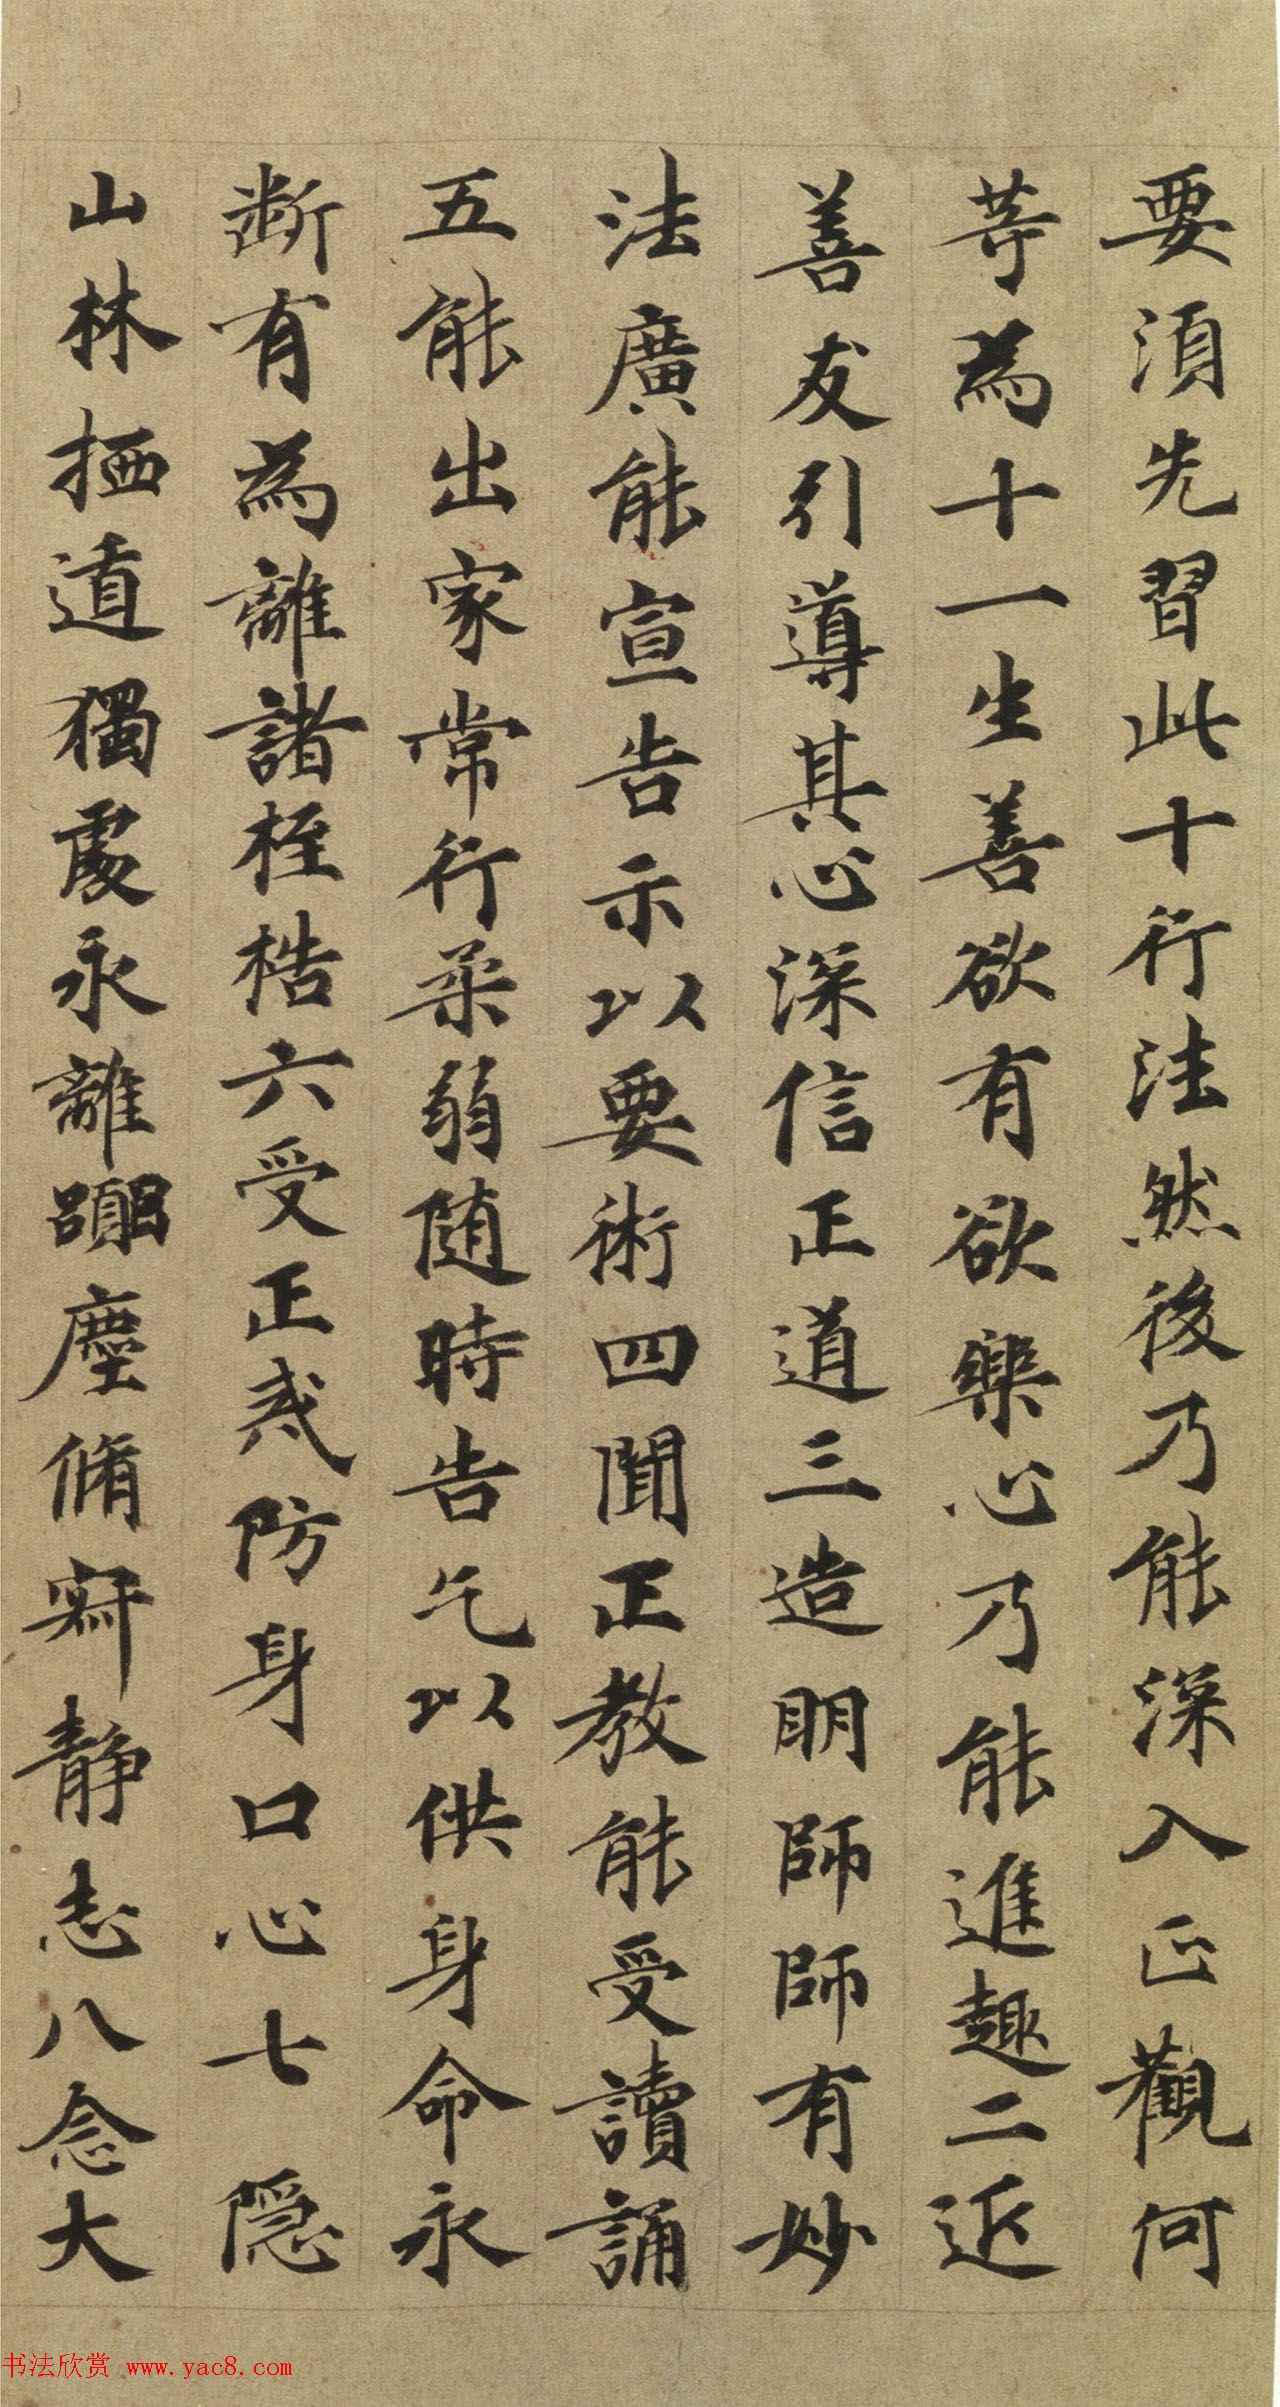 要須先習此十行法然後乃能深入正觀何
等為十一生善欲有欲樂心乃能進趣二近
善友引導其心深信正道三造明師師有妙
法廣能宣告示以要術四聞正教能受讀誦
五能出家常行柔弱随時告乞以供身命永
斷有為離諸桎梏六受正戒防身口心七隠
山林栖道獨處永離躁塵脩寂靜志八念大
书法欣赏 www.yac8.com